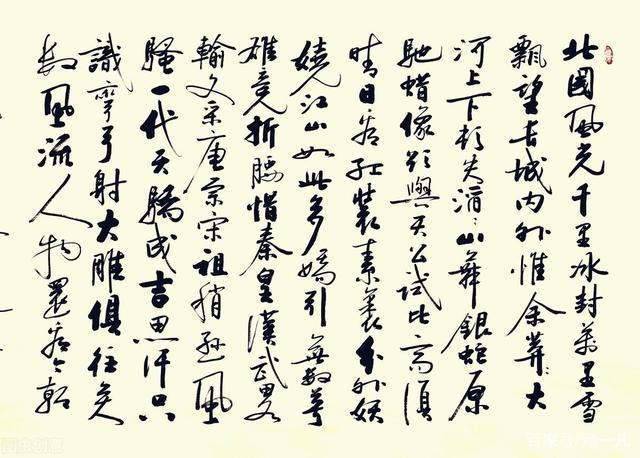 北國風光千里冰封萬里雪
飄望長城内外惟余莽莽大
河上下頓失滔滔山舞銀蛇原
馳蜡像欲與天公試比高須
晴日看紅裝素裹分外妖
嬈江山如此多嬌引無數英
雄競折腰惜秦皇漢武略
輸文采唐宗宋祖稍遜風
騷一代天驕成吉思汗只
識彎弓射大雕俱往矣
數風流人物還看今朝
图虫创意
百家号